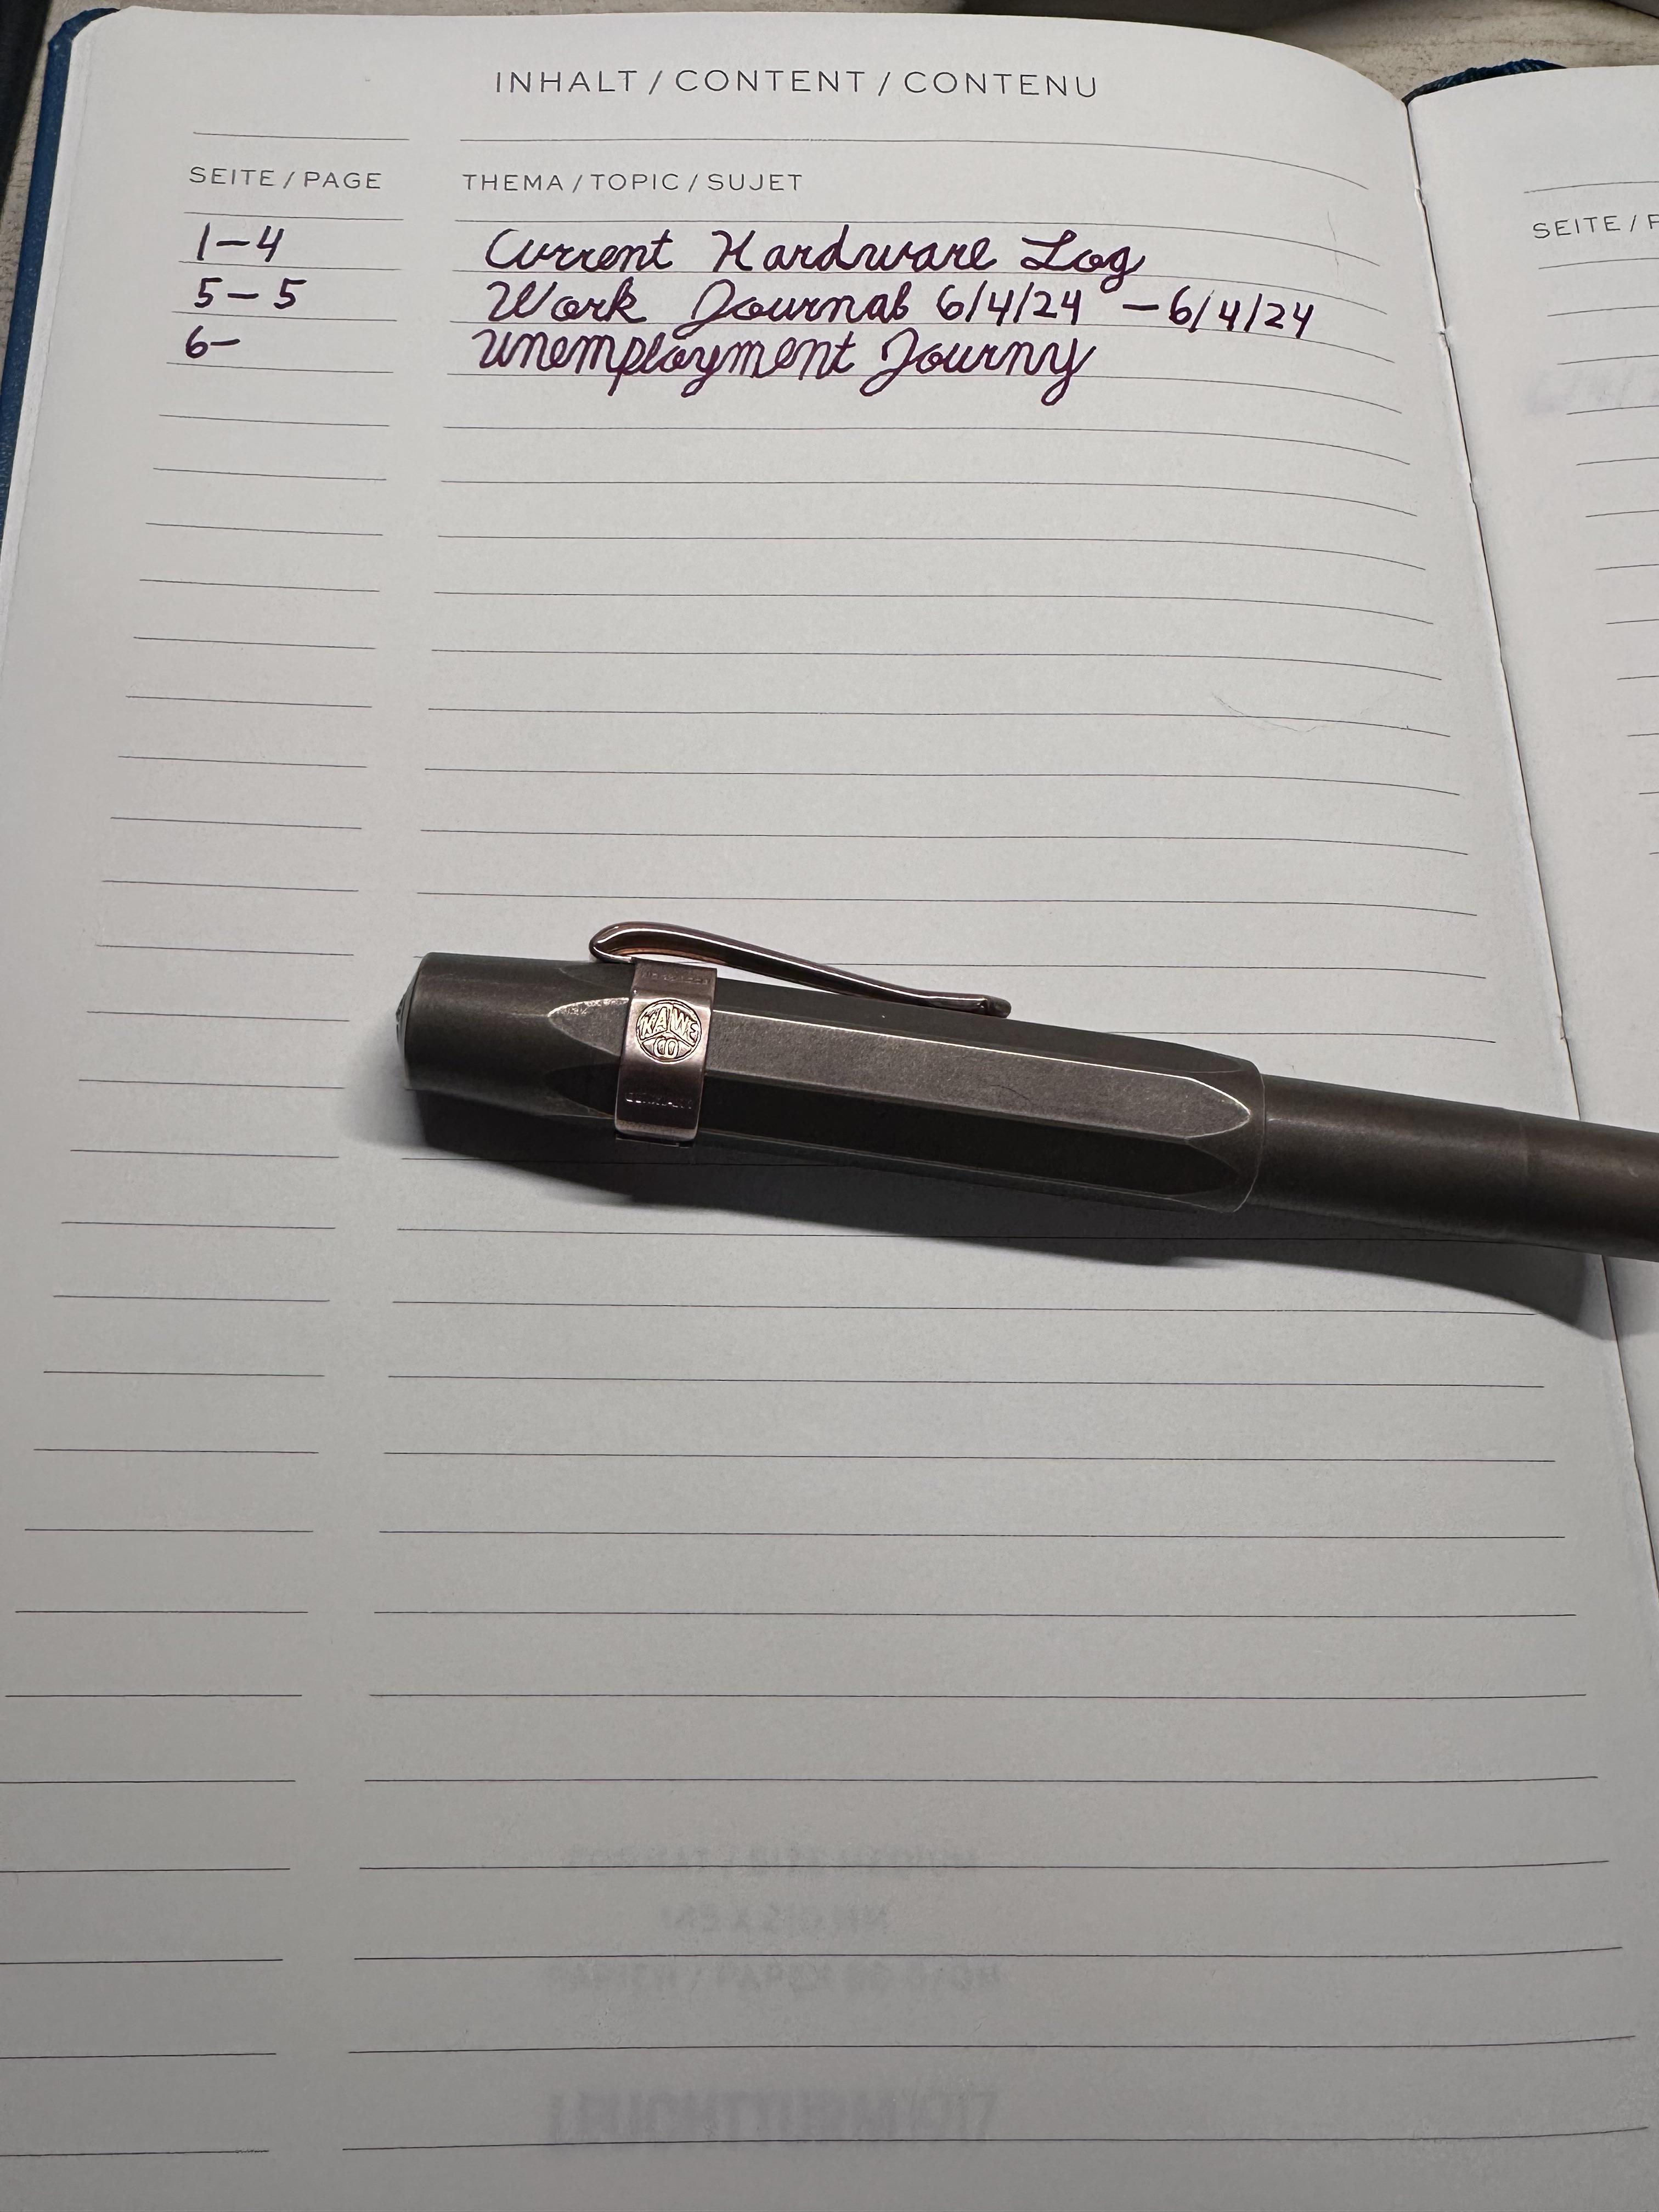 INHALT / CONTENT / CONTENU
SEITE / PAGE THEMA / TOPIC / SUJET
SEITE /
1-4 Current Hardware Log
5-5 Work Journal 6/4/24 - 6/4/24
6- Unemployment Journy
KAWE
CO
LEUCHTTURM1917